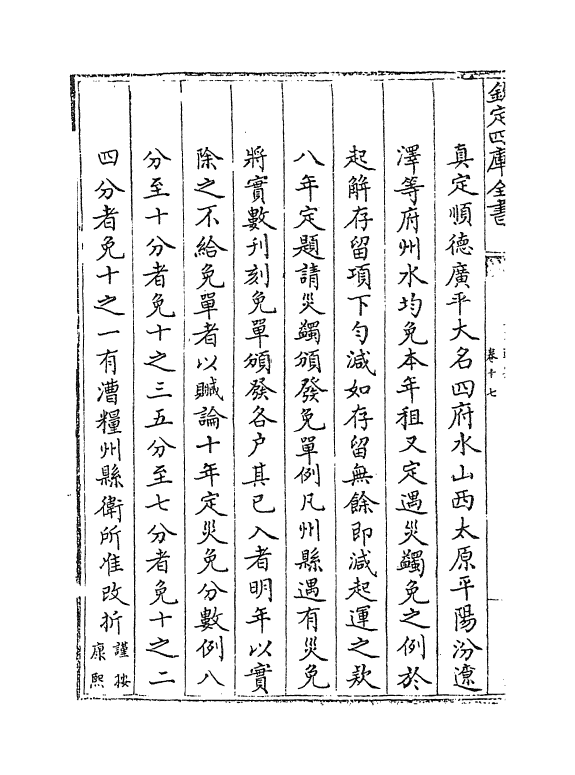 欽定四庫全書
卷十七
真定順德廣平大名四府水山西太原平陽汾遼
澤等府州水均免本年租又定遇災蠲免之例於
起解存留項下勻減如存留無餘即減起運之款
八年定題請災蠲頒發免單例凡州縣遇有災免
將實數刊刻免單頒發各户其已入者明年以實
除之不給免單者以贓論十年定災免分數例八
分至十分者免十之三五分至七分者免十之二
四分者免十之一有漕糧州縣衛所准改折謹按
康熙